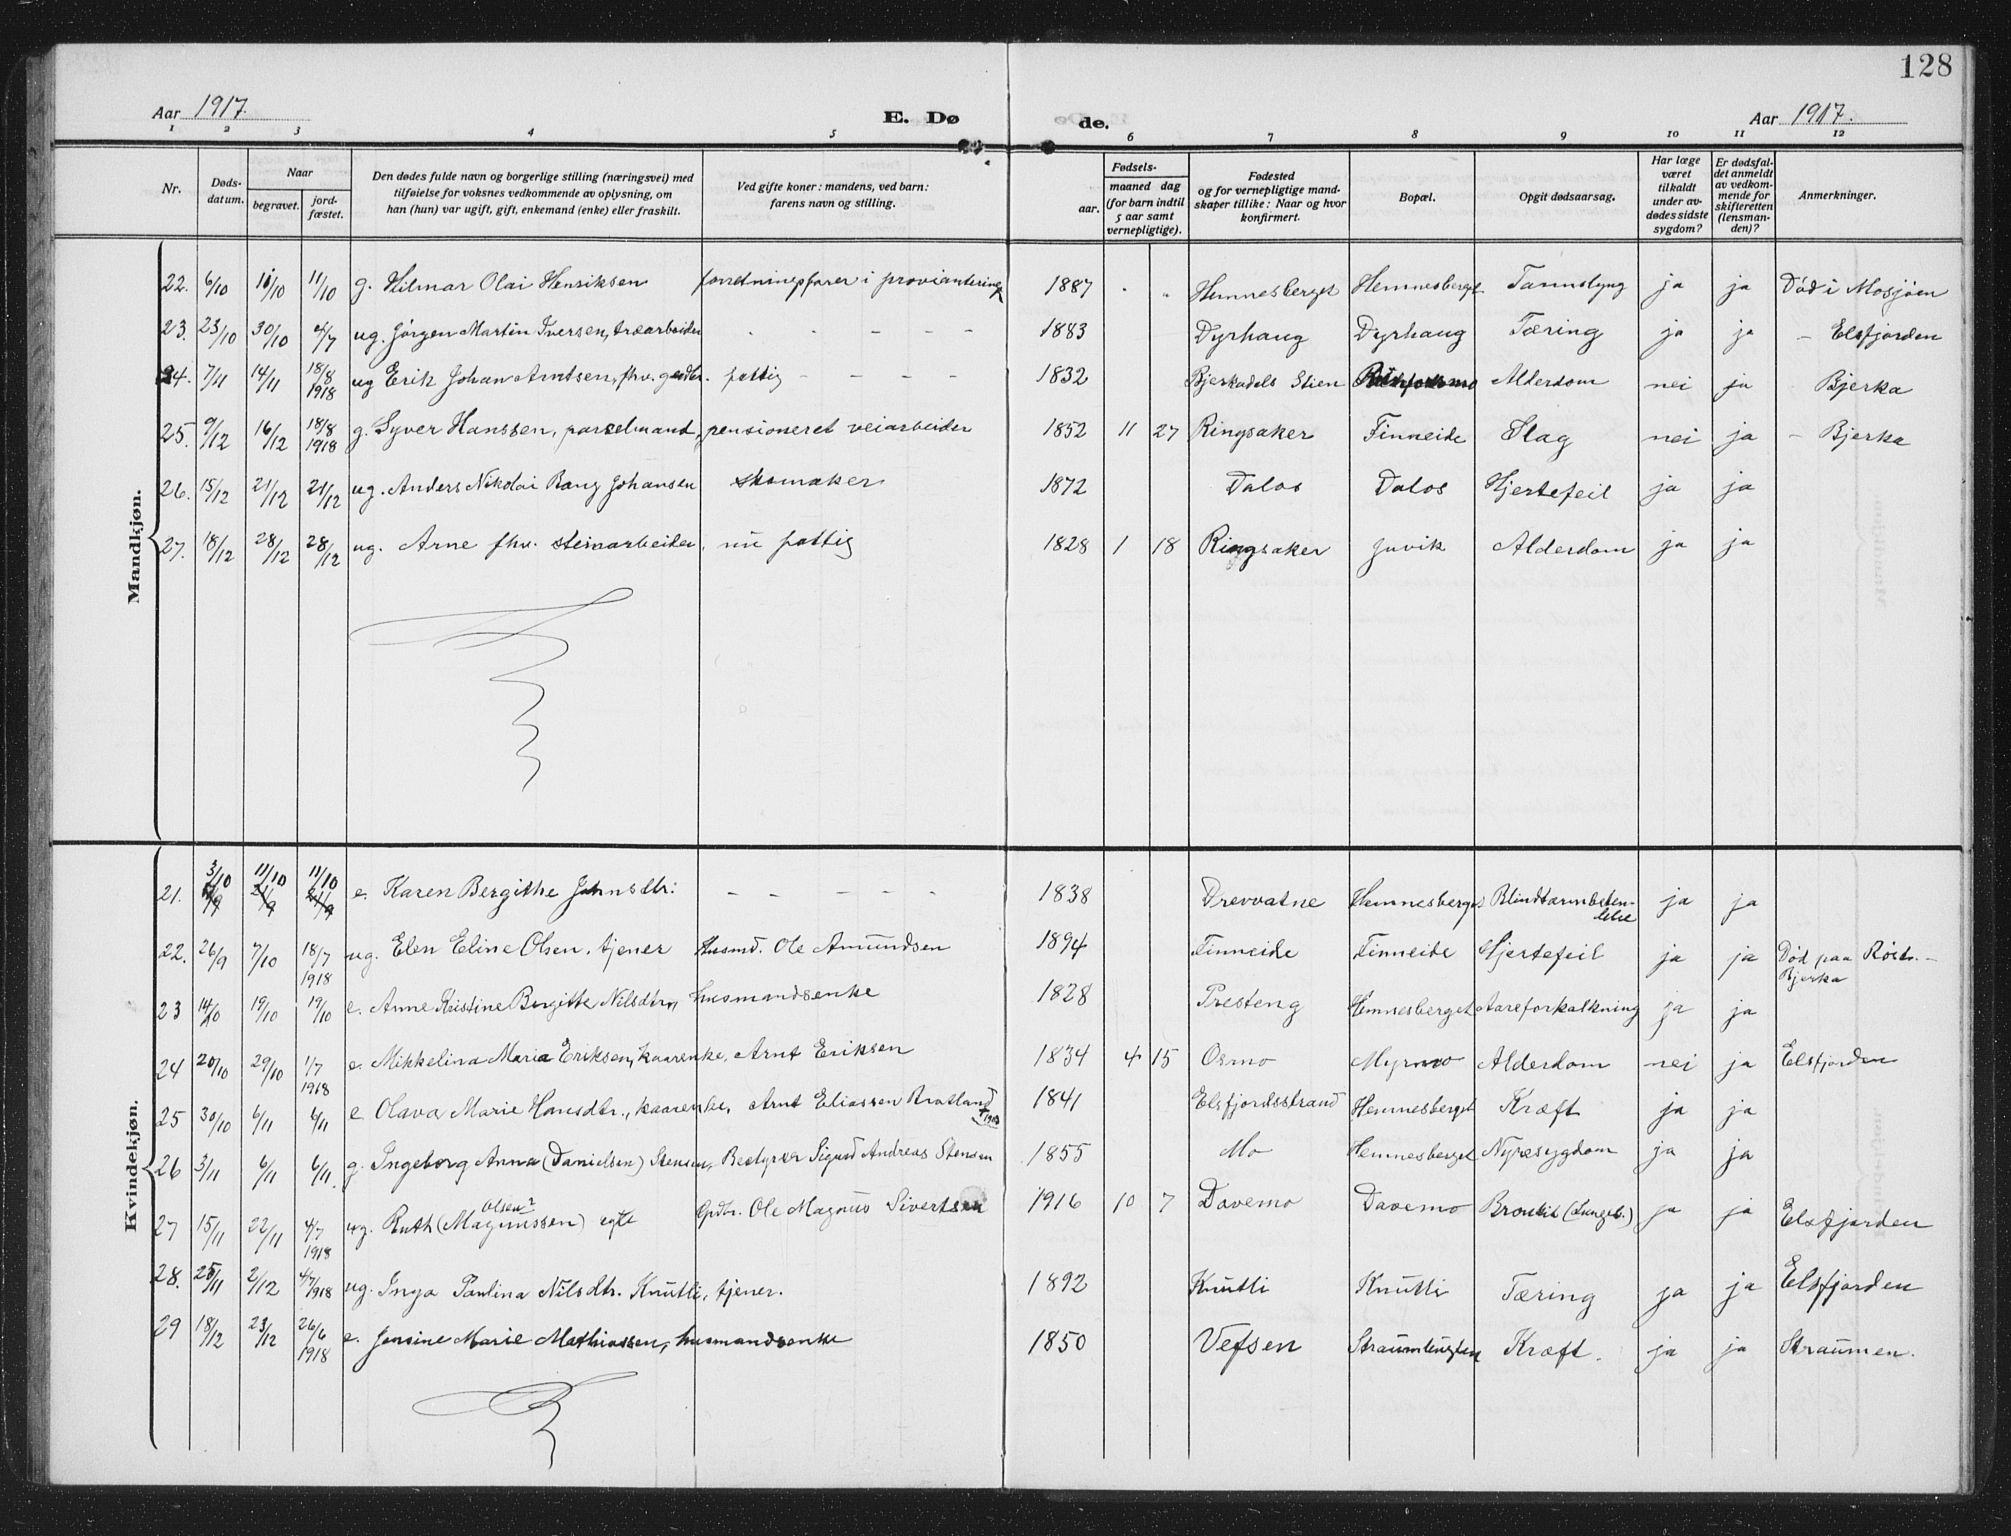 128
Aar 1917. E. Døde. Aar 1917.
1 2 3 4 5 6 7 8 9 10 11 12
Nr. | Døds-datum. | Naar begravet. | jord-fæstet. | Den dødes fulde navn og borgerlige stilling (næringsvei) med tilføielse for voksnes vedkommende av oplysning, om han (hun) var ugift, gift, enkemand (enke) eller fraskilt. | Ved gifte koner: mandens, ved barn: farens navn og stilling. | Fødsels- aar. | maaned dag (for barn indtil 5 aar samt vernepligtige). | Fødested og for vernepligtige mandskaper tillike: Naar og hvor konfirmert. | Bopæl. | Opgit dødsaarsag. | Har læge været tilkaldt under avdødes sidste sygdom? | Er dødsfaldet anmeldt av vedkommende for skifteretten (lensmanden)? | Anmerkninger.
Mandkjøn.
22. 6/10 11/10 11/10 g. Hilmar Olai Henriksen forretningsfører i proviantering 1887 " " Hemnesberget Hemnesberget ja ja Død i Mosjøen
23. 23/10 30/10 4/7 ug. Jørgen Martin Iversen, træarbeider - - - - - 1883 Dyrhaug Dyrhaug Tæring ja ja - Elsfjorden
24. 7/11 14/11 18/8 1918 ug Erik Johan Arntsen, fhv. gaardbr. fattig - - - - 1832 Bjerkadals Stien Alderdom nei ja Bjerka
25. 9/12 16/12 18/8 1918 g. Syver Hanssen, parselmand, pensioneret veiarbeider 1852 11 27 Ringsaker Finneide Slag nei ja - Bjerka
26. 15/12 21/12 21/12 ug. Anders Nikolai Rang Johansen skomaker 1872 Dalos Dalos Hjertefeil ja ja
27. 18/12 28/12 28/12 ug. Arne fhv. steinarbeider, nu fattig 1828 1 18 Ringsaker Juvik Alderdom ja ja
Kvindekjøn.
21. 3/10 11/10 11/10 e. Karen Bergithe Johnsdtr: - - - - - 1838 Drevvatne Hemnesberget Blindtarmbetendelse ja ja
22. 26/9 7/10 18/7 1918 ug. Elen Eline Olsen, tjener Husmd. Ole Amundsen 1894 Finneide Finneide Hjertefeil ja ja Død paa Bjerka
23 14/10 19/10 19/10 e. Anne Kristine Birgitte Nilsdtr, husmandsenke 1828 Presteng Hemnesberget Aareforkalkning ja ja
24 20/10 29/10 1/7 1918 e. Mikkelina Maria Eriksen, kaarenke, Arnt Eriksen 1834 4 15 Osmo Myrmo Alderdom nei ja Elsfjorden
25 30/10 6/11 6/11 e Olava Marie Hansdtr., kaarenke, Arnt Eliassen Bratland 1841 Elsfjordsstrand Hemnesberget Kræft ja ja
26 3/11 6/11 6/11 g. Ingeborg Anna (Danielsen) Stensen, Bestyrer Sigurd Andreas Stensen 1855 Mo Hemnesberget Nyresygdom ja ja
27 15/11 22/11 4/7 1918 ug. Ruth (Magnussen) Olsen? egte Grdbr. Ole Magnus Sivertsen 1916 10 7 Davemo Davemo Bronkit (Lungeb.) ja ja Elsfjorden
28. 25/11 2/12 4/7 1918 ug. Inga Paulina Nilsdtr. Knutli, tjener. 1892 Knutli Knutli Tæring ja ja Elsfjorden
29 18/12 23/12 26/6 1918 e. Jensine Marie Mathiassen, husmandsenke 1850 Vefsen Kræft. ja ja Straumen.